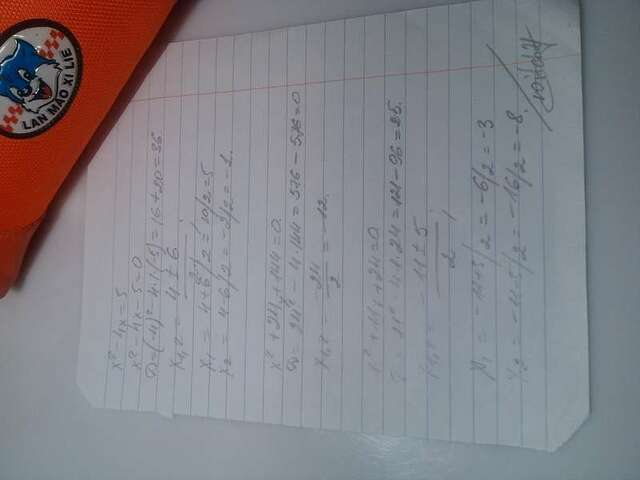 LAN MAO XI LIE
x² - 4x = 5
x² - 4x - 5 = 0
D = (-4)² - 4·1·(-5) = 16 + 20 = 36
x₁,₂ = 4 ± 6 / 2
x₁ = 4 + 6 / 2 = 10/2 = 5
x₂ = 4 - 6 / 2 = -2/2 = -1.
x² + 24x + 144 = 0.
D = 24² - 4·144 = 576 - 576 = 0
x₁,₂ = -24 / 2 = -12.
x² + 11x + 24 = 0.
D = 11² - 4·1·24 = 121 - 96 = 25.
x₁,₂ = -11 ± 5 / 2
x₁ = -11 + 5 / 2 = -6/2 = -3
x₂ = -11 - 5 / 2 = -16/2 = -8.